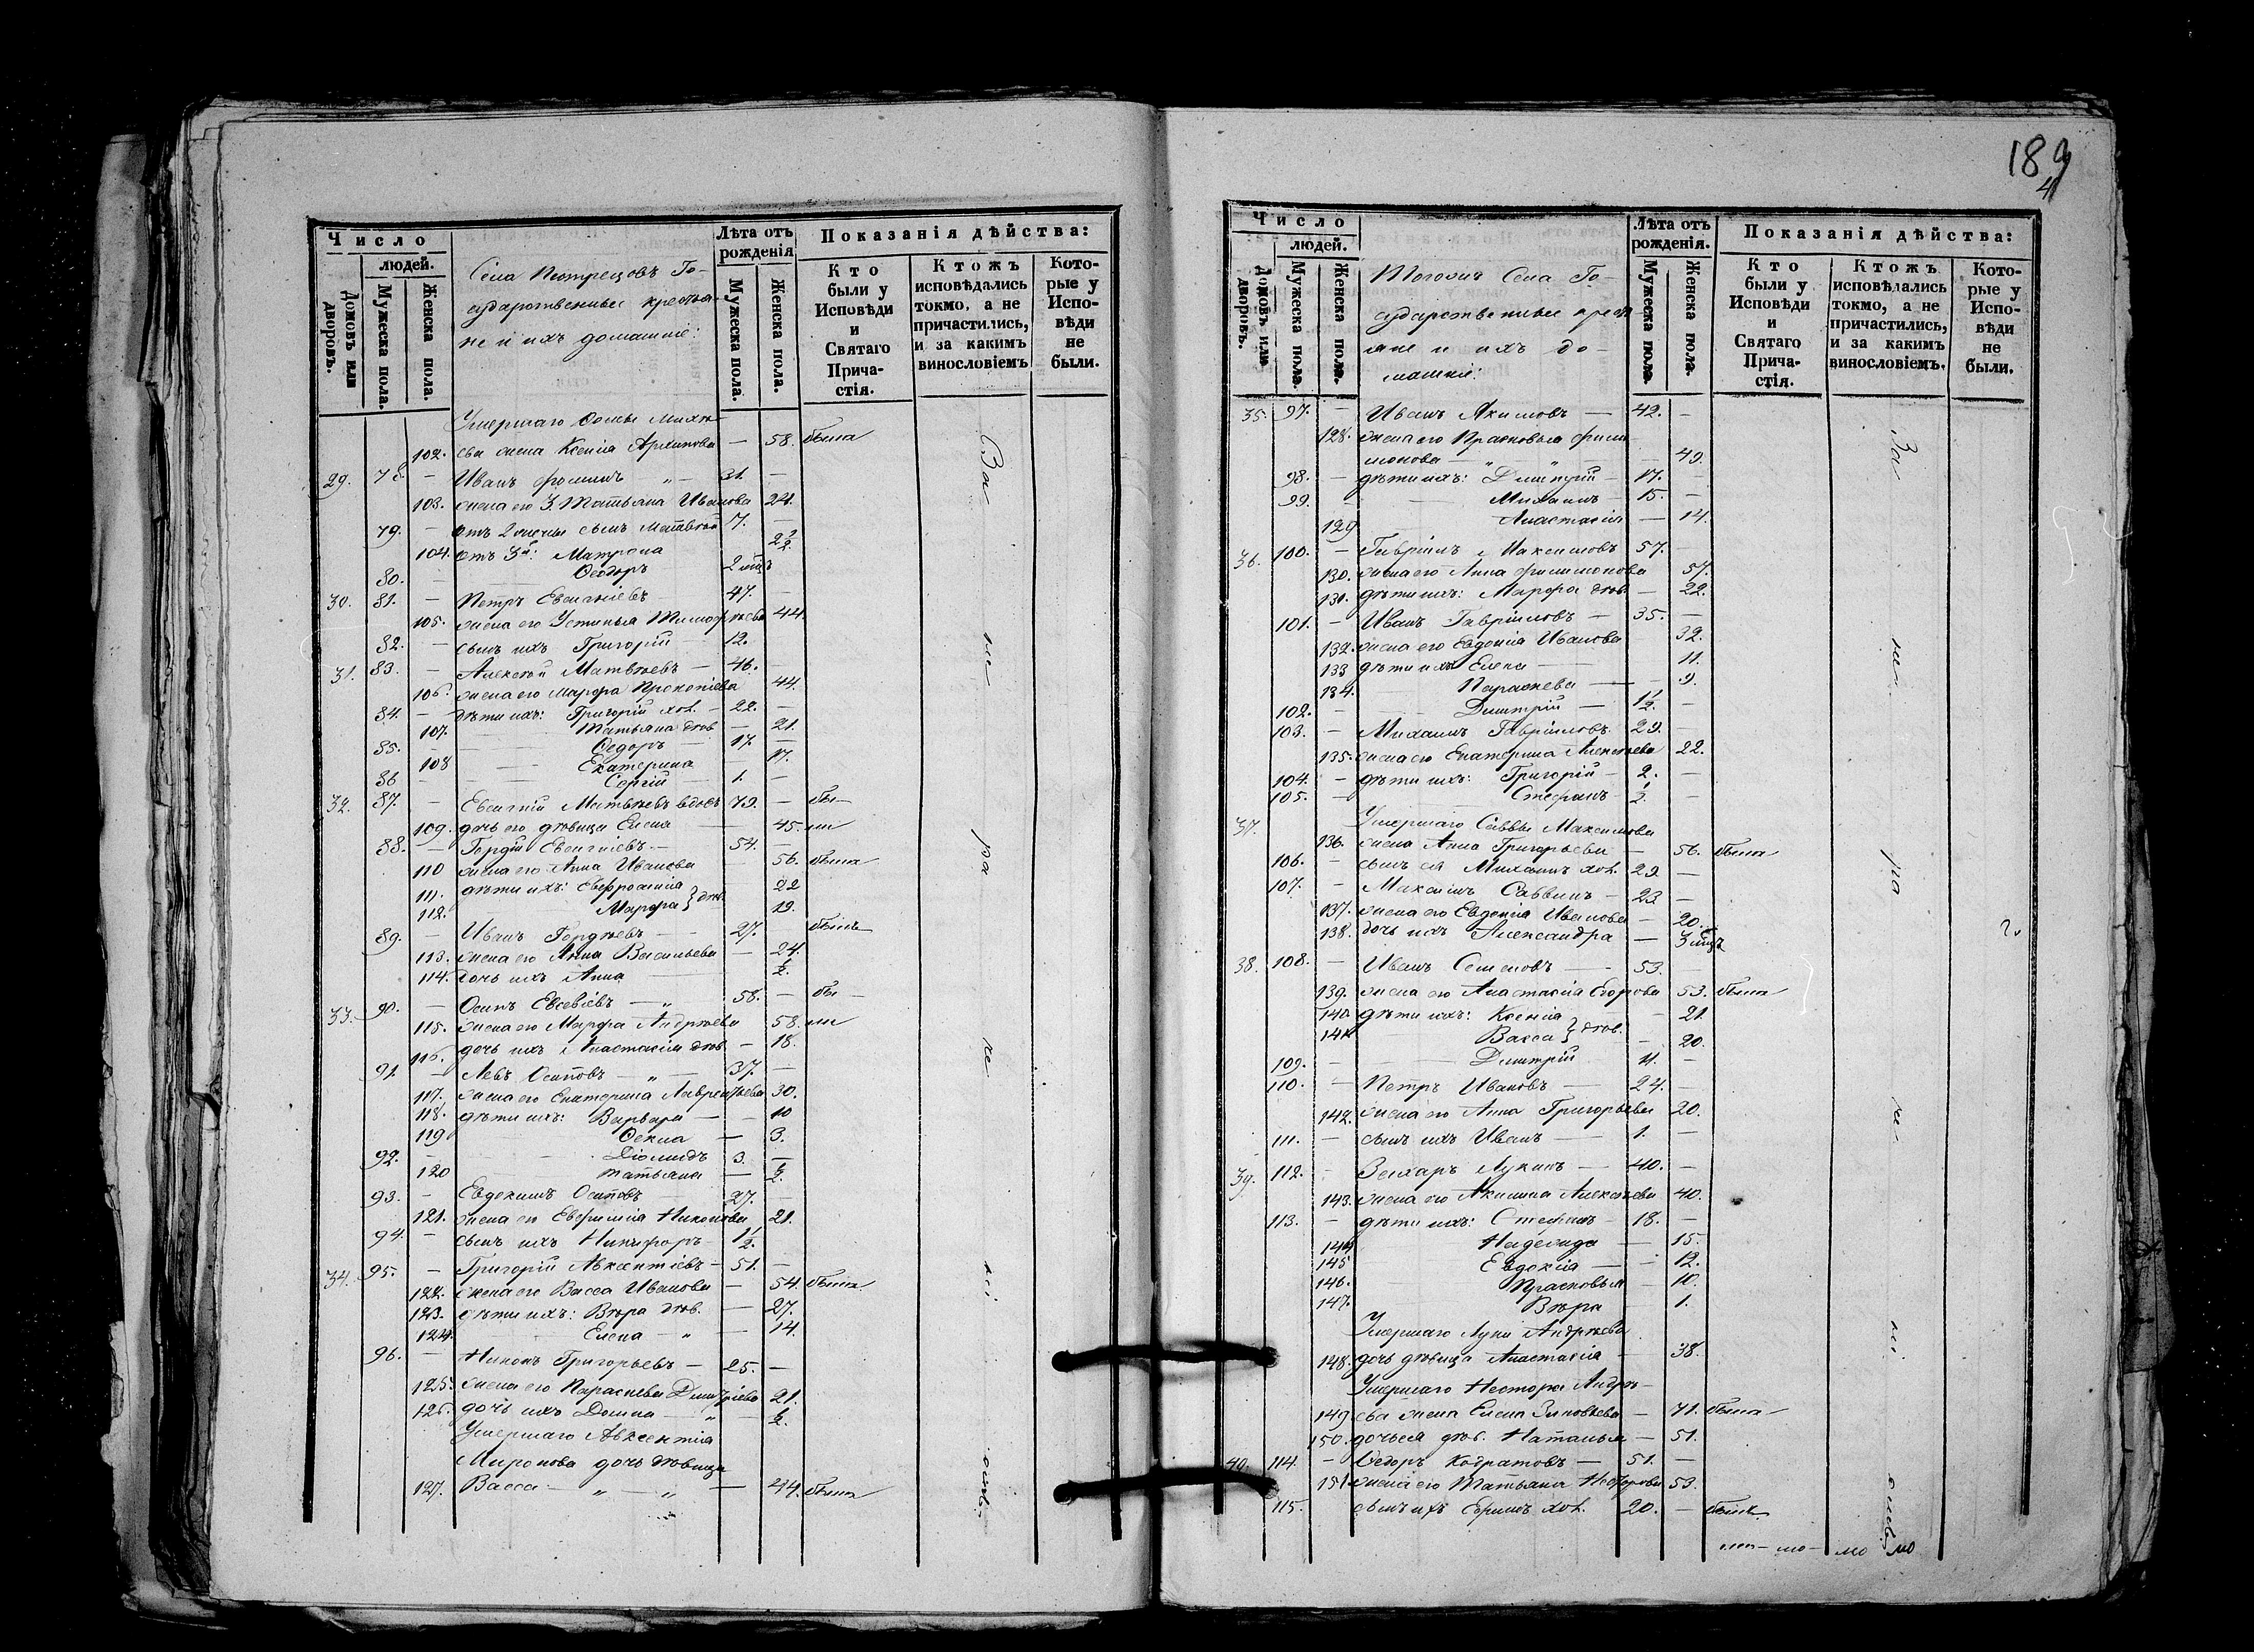 Число
людей.
Домовъ или дворовъ.
Мужеска пола.
Женска пола.
Села Пютрецовъ Го-
сударственные крестья-
не и ихъ домашніе:
Лѣта отъ рожденія
Мужеска пола.
Женска пола.
Показанія дѣйства:
Кто были у Исповѣди и Святаго Прича- стія.
Ктожъ исповѣдались токмо, а не причастились, и за какимъ винословіемъ
Кото- рые у Испо- вѣди не были.
Умершаго Ѳомы Михѣ-
102. ева жена Ксенія Архипова — 58. была
29. 78. — Иванъ Ѳоминъ „ — 31. —
103. жена его 3. Татьяна Иванова 24.
79. — отъ 2 жены сынъ Матвѣй 7. —
104. отъ 3й: Матрона 2½
80. — Ѳеодоръ 2 мцъ
30. 81. — Петръ Евгеніевъ 47. —
105. жена его Устинья Тимофѣева 44.
82. — сынъ ихъ Григорій — 12.
31. 83. — Алексѣй Матвѣевъ — 46. —
106. жена его Марфа Прокопіева 44.
84. — дѣти ихъ: Григорій хол. — 22. —
107. Татьяна дѣв. — 21.
85. — Ѳедоръ — 17. —
108 Екатерина — 17.
86 Сергій 1. —
32. 87. — Евгеній Матвѣевъ вдовъ 79. — бы-
109. дочь его дѣвица Елена 45. ли
88. — Гордій Евгеніевъ — 54. —
110 жена его Анна Иванова — 56. была
111. дѣти ихъ: Евфросинія 22
112. Марфа } дѣв. 19.
89. — Иванъ Гордѣевъ — 27. былъ
113. жена его Анна Васильева — 24.
114. дочь ихъ Анна ½.
33. 90. — Осипъ Евсевіевъ — „ 58. — бы —
115. жена его Марфа Андрѣева 58. ли
116. дочь ихъ Анастасія дѣв. — 18.
91. — Левъ Осиповъ — „ — 37. —
117. жена его Екатерина Лаврентьева 30.
118. дѣти ихъ: Варвара — — 10
119 Ѳекла — 3.
92. — Діомидъ 3. —
120 Татьяна — ½.
93. — Евдокимъ Осиповъ 27. —
121. жена его Евфимія Никонова 21.
94. — сынъ ихъ Никифоръ 1½. —
34. 95. — Григорій Авксентіевъ — 51. —
122. жена его Васса Иванова — 54. была
123. дѣти ихъ: Вѣра дѣв. — 27.
124. Елена — „ — 14.
96. — Никонъ Григорьевъ — 25. —
125. жена его Параскева Димитріева 21.
126. дочь ихъ Домна — „ — ½.
Умершаго Авксентія
Миронова дочь дѣвица
127. Васса — „ — „ — 44. была
За не ра де ні емъ
189
4
Число
людей.
Домовъ или дворовъ.
Мужеска пола.
Женска пола.
Тогожъ Села Го-
сударственные крестья-
яне и ихъ до-
машніе:
Лѣта отъ рожденія.
Мужеска пола.
Женска пола.
Показанія дѣйства:
Кто были у Исповѣди и Святаго Прича- стія.
Ктожъ исповѣдались токмо, а не причастились, и за какимъ винословіемъ.
Кото- рые у Испо- вѣди не были.
35. 97. — Иванъ Акимовъ — 42. —
128. жена его Прасковья Фили-
монова — „ — „ 49.
98. — дѣти ихъ: Димитрій — 17. —
99. — Михаилъ — 15. —
129 Анастасія — 14.
36. 100. — Гавріилъ Максимовъ 57. —
130. жена его Анна Филимонова 57.
131. дѣти ихъ: Марфа дѣв. — 22.
101. — Иванъ Гавріиловъ — 35. —
132. жена его Евдокія Иванова 32.
133 дѣти ихъ Елена — 11.
134. Параскева — — 9.
102. — Димитрій — 1½. —
103. — Михаилъ Гавріиловъ. 29. —
135. жена его Екатерина Алексѣева 22.
104. — дѣти ихъ: Григорій — 2. —
105. — Стефанъ — ½. —
37. Умершаго Саввы Максимова
136. жена Анна Григорьева — 56. была
106. — сынъ ея Михаилъ хол. 29 —
107. — Максимъ Саввинъ — 23 —
137. жена его Евдокія Иванова — 20.
138. дочь ихъ Александра — 3 мцъ
38. 108. — Иванъ Семеновъ — 53. —
139. жена его Анастасія Егорова 53. была
140 дѣти ихъ: Ксенія — 21.
141 Васса } дѣв. — 20.
109. — Димитрій 11. —
110. — Петръ Ивановъ — 24. —
142. жена его Анна Григорьева 20.
111. — сынъ ихъ Иванъ — 1. —
39. 112. — Захаръ Лукинъ — 40. —
143. жена его Акилина Алексѣева 40.
113. — дѣти ихъ: Стефанъ — 18. —
144 Надежда — 15.
145 Евдокія — — 12.
146. Прасковья — 10.
147. Вѣра — 1.
Умершаго Луки Андрѣева
148. дочь дѣвица Анастасія — 38.
Умершаго Нестора Андрѣ-
149. ева жена Елена Зиновьева — 71. была
150. дочь ея дѣв. Наталья — 51.
40. 114. — Ѳедоръ Кодратовъ — 51. —
151. жена его Татьяна Несторова 53.
115. сынъ ихъ Ефимъ хол. 20. — былъ
За не ра де ні емъ